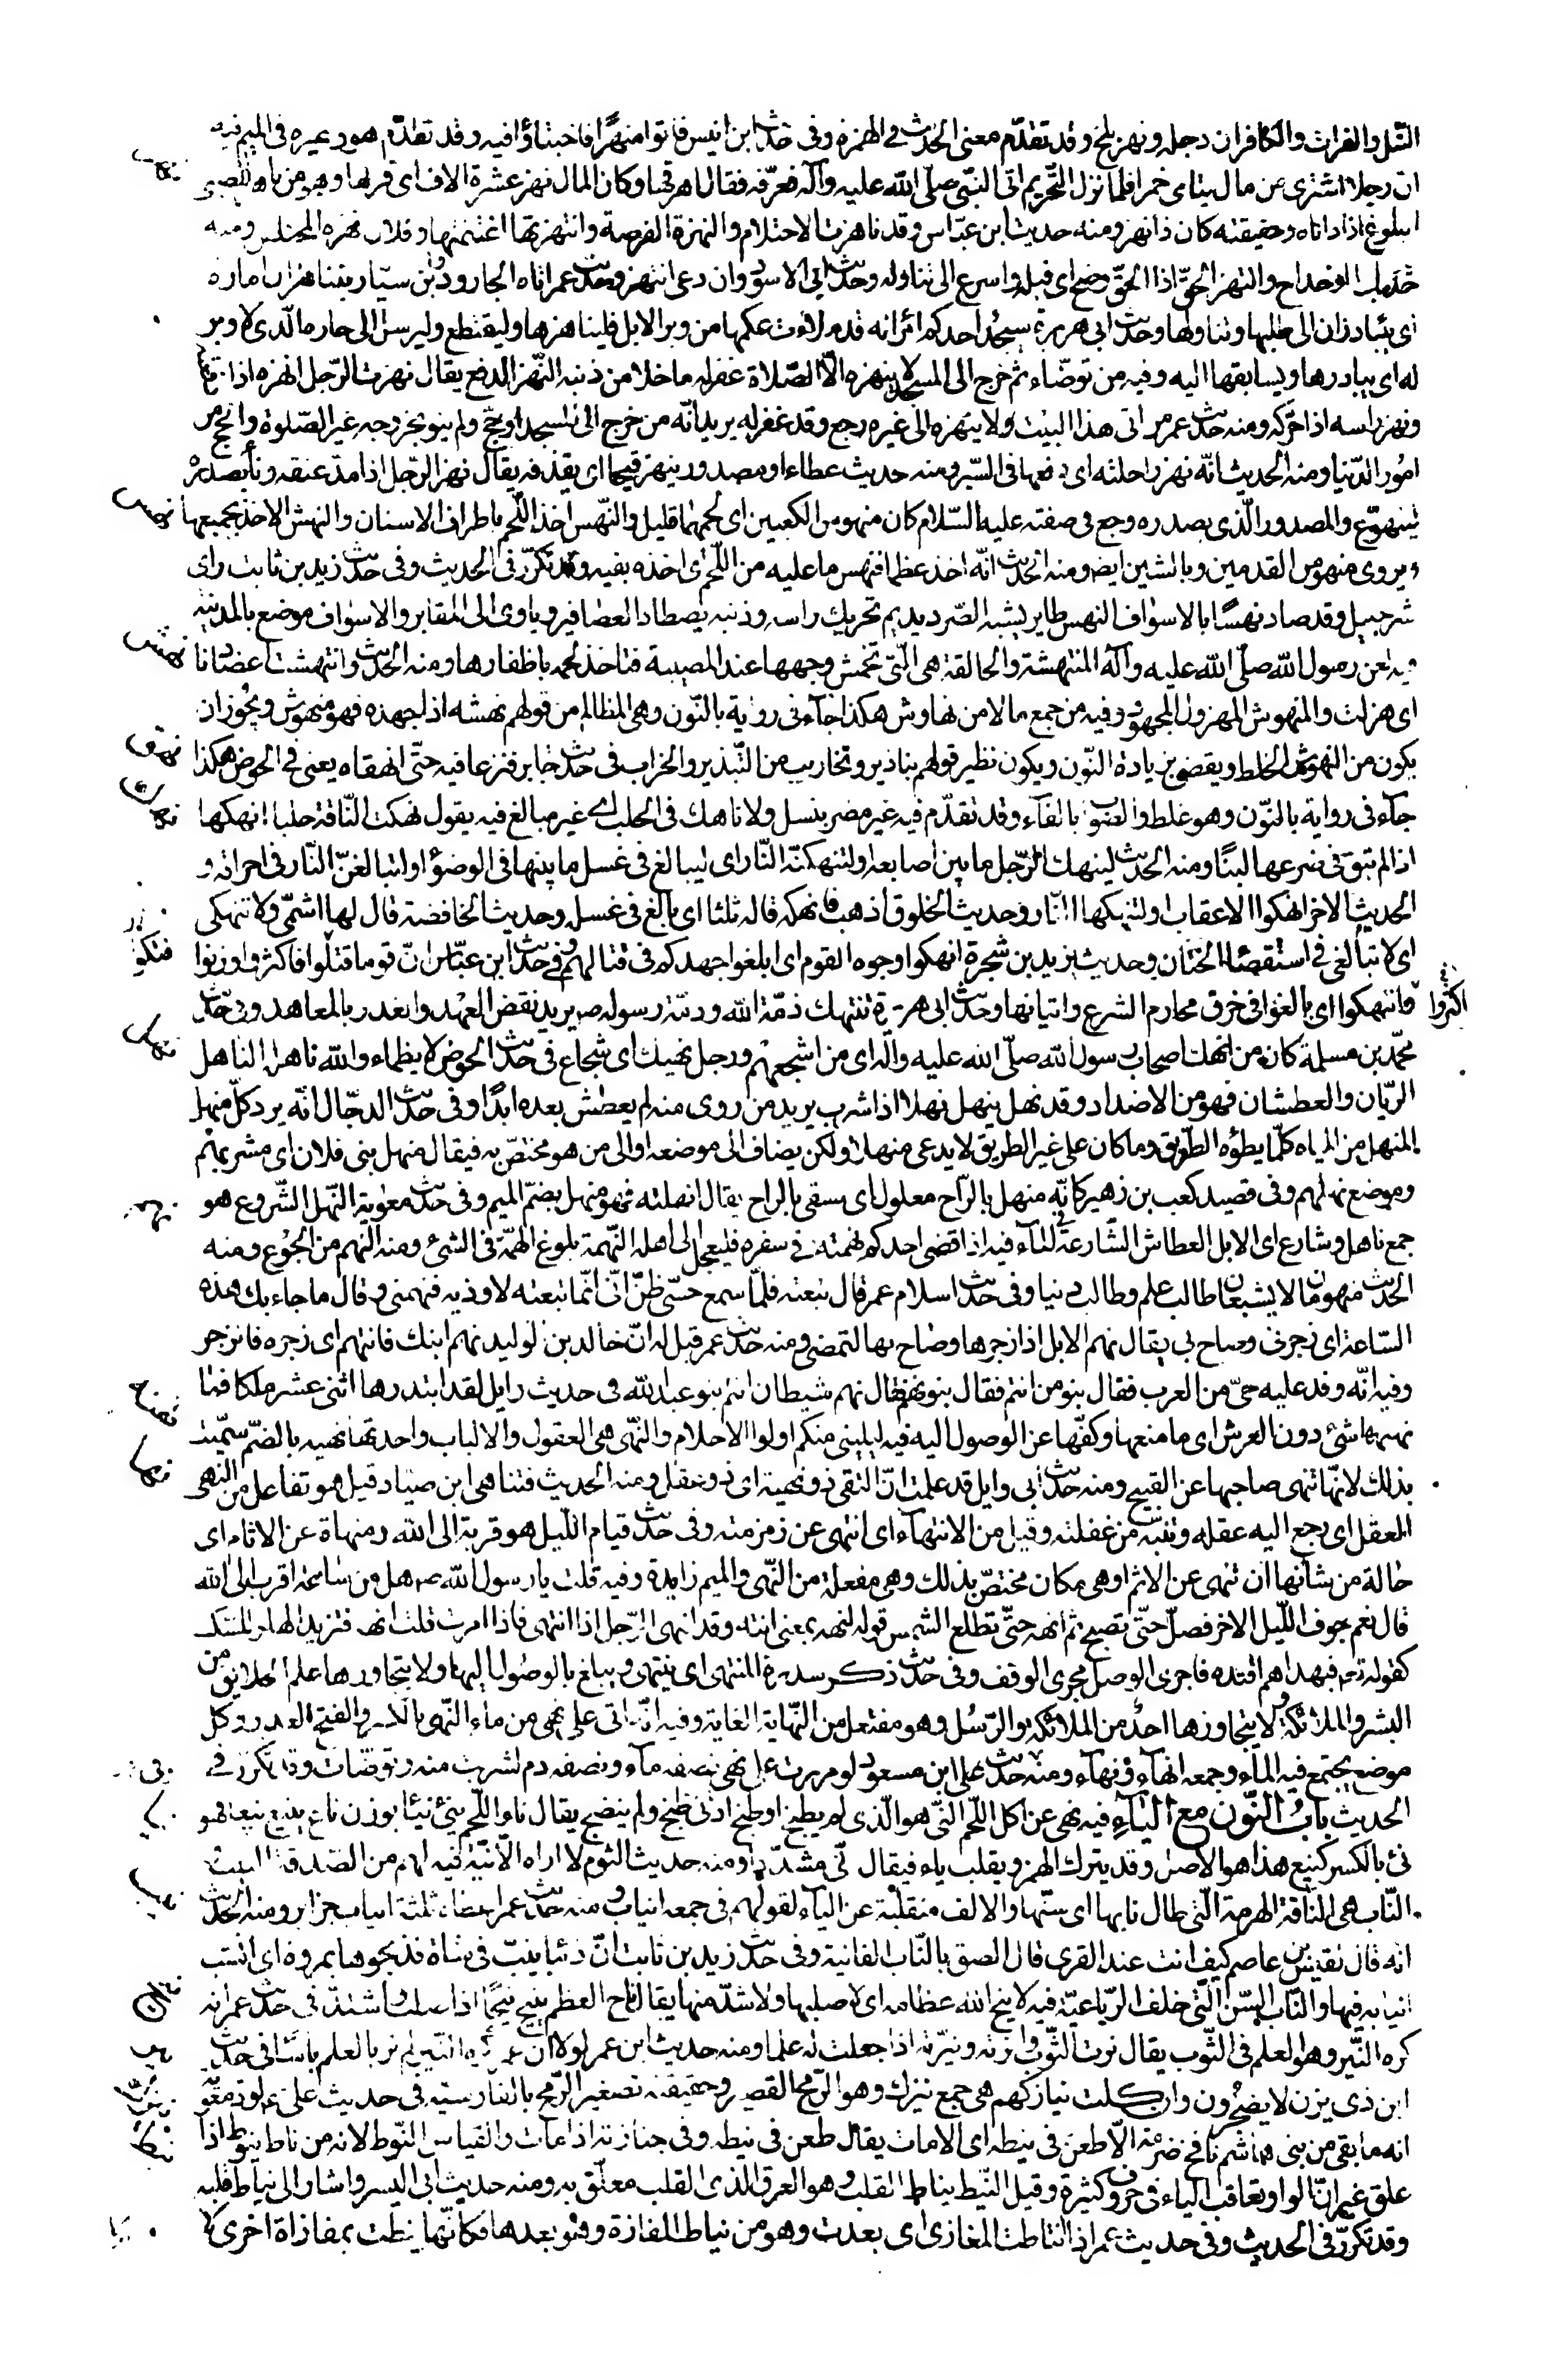 النيل والفرات والكافران دجلة ونهر بلخ وقد تقدم معنى الحديث في الهمزة وفى حديث ابن انيس فاتوا منهرا فاختباؤا فيه وقد تقدم هو وغيره في الميم فيه
ان رجلا اشترى من مال يتامى خمرا فلما نزل التحريم اتى النبي صلى الله عليه وآله فعرفه فقال اهرقها وكان المال نهز عشرة الاف اى قربها وهو من ناهز الصبي
البلوغ اذا داناه وحقيقته كان ذا نهز ومنه حديث ابن عباس وقد ناهزت الاحتلام والنهزة الفرصة وانتهزتها اغتنمتها وفلان نهزة المختلس ومنه
وانتهز الحق اذا الحق وضح اى قبله واسرع الى تناوله وحديث ابي الاسود وان دعى انتهز وحديث عمر اتاه الجارود وابن سيار يتناهزان امارة
اى يتبادران الى طلبها وتناولها وحديث ابي هريرة سيجد احدكم امرأته قد ملات عكمها من وبر الابل فليناهزها وليقتطع وليرسل الى جاره الذى لا وبر
له اى يبادرها ويسابقها اليه وفيه من توضاء ثم خرج الى المسجد لا ينهزه الا الصلاة غفر له ما خلا من ذنبه النهز الدفع يقال نهزت الرجل انهزه اذا دفعته
ونهز راسه اذا حركه ومنه حديث عمر من اتى هذا البيت ولا ينهزه الى غيره رجع وقد غفر له يريد انه من خرج الى المسجد او حج ولم ينو بخروجه غير الصلوة والحج من
امور الدنيا ومنه الحديث انه نهز راحلته اى دفعها في السير ومنه حديث عطاء او مصدور ينهز قيحا اى يقذفه يقال نهز الرجل اذا مد عنقه ونأ بصدره
ليتهوع والمصدور الذى بصدره وجع في صفته عليه السلام كان منهوس الكعبين اى لحمهما قليل والنهس اخذ اللحم باطراف الاسنان والنهش الاخذ بجميعها نهس
ويروى منهوس القدمين وبالشين ايضا ومنه الحديث انه اخذ عظما فنهس ما عليه من اللحم اى اخذه بفيه وقد تكرر في الحديث وفى حديث زيد بن ثابت راى
شرجبيل وقد صاد نهسا بالاسواف النهس طاير يشبه الصرد يديم تحريك راسه وذنبه يصطاد العصافير وياوى الى المقابر والاسواف موضع بالمدينة
فيه لعن رسول الله صلى الله عليه وآله المنتهشة والحالقة هى التى تخمش وجهها عند المصيبة فتاخذ لحمه باظفارها ومنه الحديث وانتهشت اعضادنا نهش
اى هزلت والمنهوش المهزول المجهود وفيه من جمع مالا من نهاوش هكذا جآء في رواية بالنون وهى المظالم من قولهم نهشه اذا جهده فهو منهوش ويجوز ان
يكون من الهوش الخلط ويقضى بزيادة النون ويكون نظير قولهم تباذير وتخاريب من التبذير والخراب في حديث جابر فنزعنا فيه حتى انهقناه يعنى في الحوض هكذا نهق
جآء في رواية بالنون وهو غلط والصواب بالفآء وقد تقدم فيه غير مضر بنسل ولا ناهك في الحلب اى غير مبالغ فيه يقول نهكت الناقة حلبا انهكها نهك
اذا لم تبق في ضرعها لبنا ومنه الحديث لينهك الرجل ما بين اصابعه او لتنهكنه النار اى ليبالغ في غسل ما بينها في الوضوء او لتبالغن النار في احراقه و
الحديث الاخر انهكوا الاعقاب او لتنهكنها النار وحديث الخلوق اذهب فانهكه قاله ثلثا اى بالغ في غسله وحديث الخافضة قال لها اشمى ولا تنهكى
اى لا تبالغى في استقصاء الختان وحديث يزيد بن شجرة انهكوا وجوه القوم اى ابلغوا جهدكم في قتالهم وفي حديث ابن عباس ان قوما قتلوا فاكثروا وزنوا
اكثروا وانتهكوا اى بالغوا في خرق محارم الشرع واتيانها وحديث ابي هريرة تنتهك ذمة الله وذمة رسوله يريد نقض العهد والغدر بالمعاهد وفى حديث
محمد بن مسلمة كان من انهك اصحاب رسول الله صلى الله عليه وآله اى من اشجعهم ورجل نهيك اى شجاع في حديث الحوض لا يظماء والله ناهله الناهل نهل
الريان والعطشان فهو من الاضداد وقد نهل ينهل نهلا اذا شرب يريد من روى منه لم يعطش بعده ابدا وفى حديث الدجال انه يرد كل منهل
المنهل من المياه كلما يطؤه الطريق وما كان على غير الطريق لا يدعى منهلا ولكن يضاف الى موضعه او الى من هو مختص به فيقال منهل بنى فلان اى مشربهم
وموضع نهلهم وفى قصيد كعب بن زهير كانه منهل بالراح معلول اى مسقى بالراح يقال انهلته فهو منهل بضم الميم وفى حديث معوية النهل الشروع هو
جمع ناهل وشارع اى الابل العطاش الشارعة في المآء فيه اذا قضى احدكم نهمته في سفره فليعجل الى اهله النهمة بلوغ الهمة في الشئ ومنه النهم من الجوع ومنه نهم
الحديث منهومان لا يشبعان طالب علم وطالب دنيا وفى حديث اسلام عمر قال تبعته فلما سمع حسى ظن انى انما تبعته لاوذيه فنهمنى وقال ما جاء بك هذه
الساعة اى زجرنى وصاح بي يقال نهم الابل اذا زجرها وصاح بها لتمضى ومنه حديث عمر قيل له ان خالد بن الوليد نهم ابنك فانتهم اى زجره فانزجر
وفيه انه وفد عليه حى من العرب فقال بنو من انتم فقال بنو نهم فقال نهم شيطان انتم بنو عبدالله فى حديث رايل لقد ابتدرها اثنى عشر ملكا فما
نهنهها شئ دون العرش اى ما منعها وكفها عن الوصول اليه فيه ليلينى منكم اولوا الاحلام والنهى هى العقول والالباب واحدتها نهيه بالضم سميت نها
بذلك لانها تنهى صاحبها عن القبيح ومنه حديث ابى وايل قد علمت ان التقى ذو نهية اى ذو عقل ومنه الحديث فتناهى ابن صياد قيل هو تفاعل من النهى
العقل اى رجع اليه عقله وتنبه من غفلته وقيل من الانتهآء اى انتهى عن زمزمته وفى حديث قيام الليل هو قربة الى الله ومنهاة عن الاثام اى
حالة من شأنها ان تنهى عن الاثم او هى مكان مختص بذلك وهى مفعلة من النهى والميم زايدة وفيه قلت يا رسول الله هل من ساعة اقرب الى الله
قال نعم جوف الليل الاخر فصل حتى تصبح ثم انهه حتى تطلع الشمس قوله انهه بمعنى انته وقد انهى الرجل اذا انتهى فاذا امرت قلت انهه فتزيد الهاء للسكت
كقوله تع فبهداهم اقتده فاجرى الوصل مجرى الوقف وفى حديث ذكر سدرة المنتهى اى ينتهى ويبلغ بالوصول اليها ولا يتجاورها علم الخلايق من
البشر والملائكة او لا يتجاوزها احد من الملائكة والرسل وهو مفتعل من النهاية الغاية وفيه انه اتى على نهى من ماء النهى بالكسر والفتح الغدير وكل
موضع يجتمع فيه المآء وجمعه انهآء ونهآء ومنه حديث ابن مسعود لو مررت على نهى نصفه مآء ونصفه دم لشربت منه وتوضأت وقد تكرر في
الحديث باب النون مع اليآء فيه نهى عن اكل اللحم النى هو الذى لم يطبخ او طبخ ادنى طبخ ولم ينضج يقال ناء اللحم ينئ نيئا بوزن ناع ينيع نيعا فهو
نئ بالكسر كنيع هذا هو الاصل وقد يترك الهمز ويقلب ياء فيقال نى مشددا ومنه حديث الثوم لا اراه الا نيه فيه لهم من الصدقة
الناب هى الناقة الهرمة التى طال نابها اى سنها والالف منقلبة عن اليآء لقولهم في جمعه انياب ومنه حديث عمر اعطاه ثلثة انياب جزاير ومنه الحديث نيب
انه قال لقيس بن عاصم كيف انت عند القرى قال الصق بالناب الفانية وفى حديث زيد بن ثابت ان ذئبا نيب في شاة فذبحوها بمروة اى انشب
انيابه فيها والناب السن التى خلف الرباعية فيه لا نيح الله عظامه اى لا صلبها ولا شد منها يقال ناح العظم ينيح نيحا اذا صلب واشتد في حديث عمر انه
كره النير وهو العلم في الثوب يقال نرت الثوب وانرته ونيرته اذا جعلت له علما ومنه حديث ابن عمر لولا ان عمر كره النير لم نر بالعلم باسا في حديث نير
ابن ذى يزن لا يضجرون وان كلت نيازكهم هى جمع نيزك وهو الرمح القصير وحقيقته تصغير الرمح بالفارسية فى حديث على
انه ما بقى من بنى هاشم نافخ ضرمة الا طعن فى نيطه اى الا مات يقال طعن فى نيطه وفى جنازته اذا مات والقياس النوط لانه من ناط ينوط اذا نيط
علق غير ان الواو تعاقب الياء في حروف كثيرة وقيل النيط نياط القلب وهو العرق الذى القلب معلق به ومنه حديث ابى اليسر واشار الى نياط قلبه
وقد تكرر في الحديث وفى حديث عمر اذا انتاطت المغازى اى بعدت وهو من نياط المفازة وهو بعدها فكانها نيطت بمفازاة اخرى لا